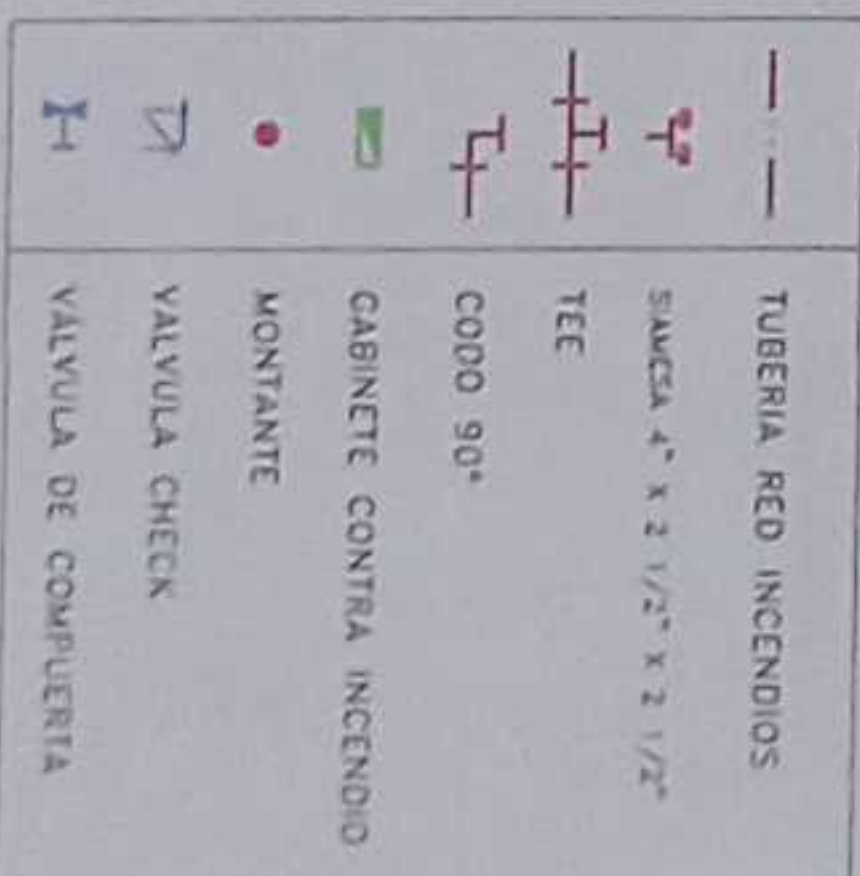 TUBERIA RED INCENDIOS
SIAMESA 4" X 2 1/2" X 2 1/2"
TEE
CODO 90°
GABINETE CONTRA INCENDIO
MONTANTE
VALVULA CHECK
VALVULA DE COMPUERTA